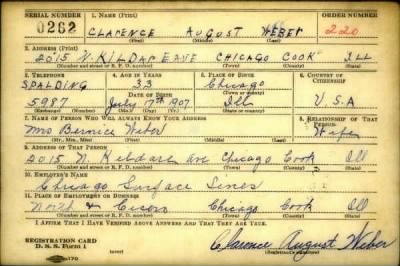 SERIAL NUMBER 1. NAME (Print) ORDER NUMBER
0262 CLARENCE AUGUST WEBER 220
(First) (Middle) (Last)
2. ADDRESS (Print)
2015 N. KILDARE AVE CHICAGO COOK ILL
(Number and street or R. F. D. number) (Town) (County) (State)
3. TELEPHONE 4. AGE IN YEARS 5. PLACE OF BIRTH 6. COUNTRY OF CITIZENSHIP
SPALDING 33 Chicago
DATE OF BIRTH (Town or county)
5987 July 17th 1907 Ill U.S.A
(Exchange) (Number) (Mo.) (Day) (Yr.) (State or country)
7. NAME OF PERSON WHO WILL ALWAYS KNOW YOUR ADDRESS 8. RELATIONSHIP OF THAT PERSON
Mrs Bernice Weber Wife
(Mr., Mrs., Miss) (First) (Middle) (Last)
9. ADDRESS OF THAT PERSON
2015 N. Kildare Ave Chicago Cook Ill
(Number and street or R. F. D. number) (Town) (County) (State)
10. EMPLOYER'S NAME
Chicago Surface Lines
11. PLACE OF EMPLOYMENT OR BUSINESS
North & Cicero Chicago Cook Ill
(Number and street or R. F. D. number) (Town) (County) (State)
I AFFIRM THAT I HAVE VERIFIED ABOVE ANSWERS AND THAT THEY ARE TRUE.
REGISTRATION CARD
D. S. S. Form 1 (over) Clarence August Weber